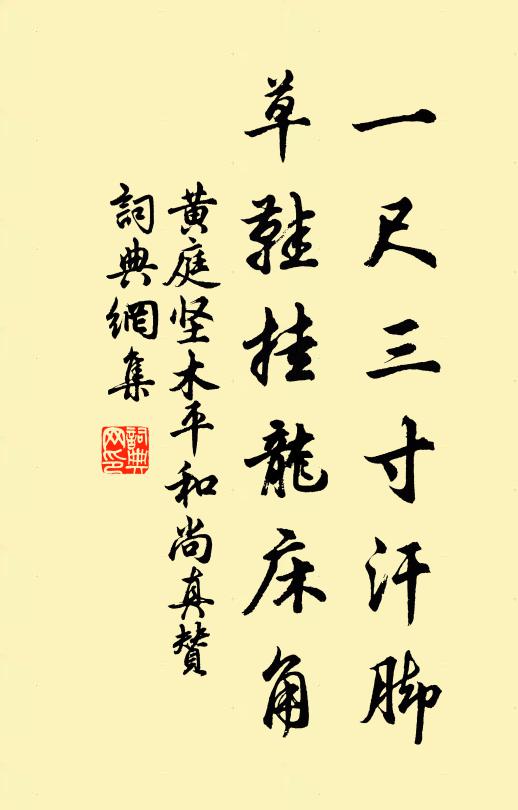 一尺三寸汗脚
草鞋挂龍床角
黄庭坚木平和尚真贊
詞典網集
詞典網印